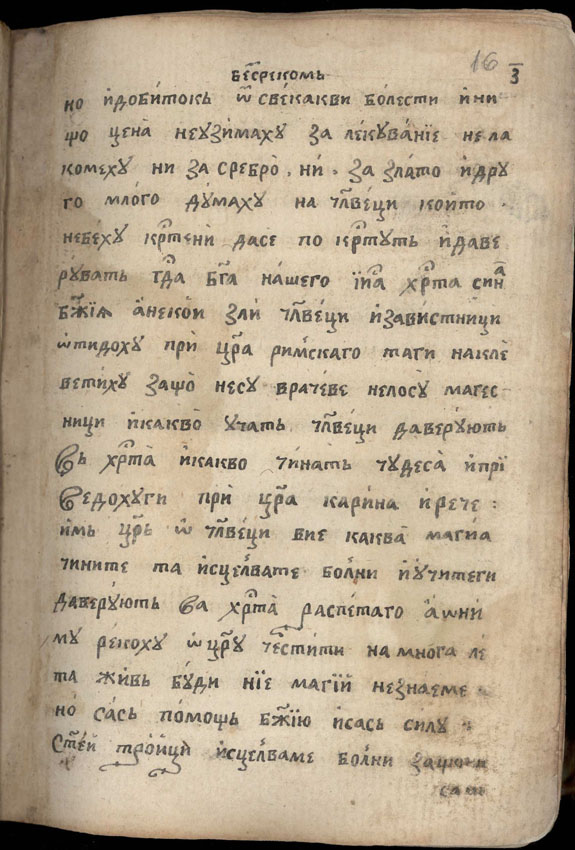 16
бес҃рекомь
з҃
но и҆добитокь ѿ свекакви болести и҆ни
що цена̀ неузимаху за лекува́нїе не ла
комеху ни за сребро̀. ни. за зла́то и҆дру
го мло́го ду́маху на чл҃ве́ци който
небеху кр҃тени̇̀ дасе по кр҃туть и҆даве
рувать гд҃а бг҃а на́шего і҆и҃са хр҃та син҃а
бж҃їѧ а҆неко́и зли чл҃ве́ци и҆зави́стници
ѡ҆тидо́ху при̇̀ цр҃а ри́мскаго таги накле
вети́ху защо̀ несу̀ врачеве нелосу̀ магес
ници и҆какво̀ учать чл҃ве́ци даверу́ють
вь хр҃та̀ и҆какво чи́нать чудеса̀ и҆прї
ведохуги при̇̀ цр҃а карина и҆рече :
и҆мь цр҃ь ѡ҆ чл҃ве́ци вие каква̀ маги́а
чините та и҆сцел҃вате бол҃ни и҆у҆читеги
даверу́ють ва хр҃та̀ распе́таго а҆ѡ҆ни́
му ре́коху ѡ҆ цр҃у че҃сти́ти на мно́га ле́
та живь бу́ди ни́е маги́й незна́еме
но̀ сась по́мощь бж҃їю и҆сась силу
ст҃е́й тро́йци и҆сцел҃ваме бол҃ни